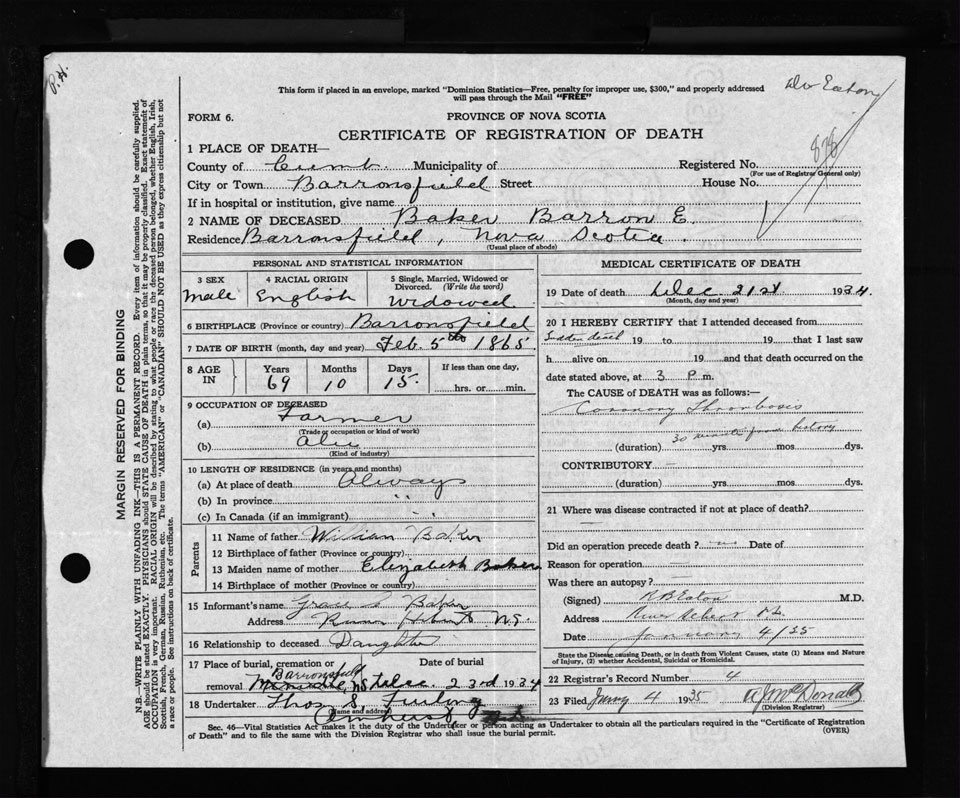 P.H.
Dr Eaton
This form if placed in an envelope, marked "Dominion Statistics—Free, penalty for improper use, $300," and properly addressed
will pass through the Mail "FREE"
FORM 6.
PROVINCE OF NOVA SCOTIA
CERTIFICATE OF REGISTRATION OF DEATH
878
1 PLACE OF DEATH—
County of Cumb. Municipality of Registered No.
(For use of Registrar General only)
City or Town Barronsfield Street House No.
If in hospital or institution, give name
2 NAME OF DECEASED Baker Barron E.
Residence Barronsfield, Nova Scotia.
(Usual place of abode)
PERSONAL AND STATISTICAL INFORMATION
3 SEX 4 RACIAL ORIGIN 5 Single, Married, Widowed or
Divorced. (Write the word)
Male English Widowed
6 BIRTHPLACE (Province or country) Barronsfield
7 DATE OF BIRTH (month, day and year) Feb. 5th 1865
8 AGE IN Years Months Days If less than one day,
69 10 15 hrs. or min.
9 OCCUPATION OF DECEASED
(a) Farmer
(Trade or occupation or kind of work)
(b)
(Kind of industry)
10 LENGTH OF RESIDENCE (in years and months)
(a) At place of death Always
(b) In province "
(c) In Canada (if an immigrant) "
Parents
11 Name of father William Baker
12 Birthplace of father (Province or country)
13 Maiden name of mother Elizabeth Baker
14 Birthplace of mother (Province or country)
15 Informant's name Grace Baker
Address River Hebert N.S.
16 Relationship to deceased Daughter
17 Place of burial, cremation or Date of burial
Barronsfield
removal Dec. 23rd 1934
18 Undertaker Thos S. Furlong
(Name and address)
Amherst N.S.
MEDICAL CERTIFICATE OF DEATH
19 Date of death Dec 21st 1934.
(Month, day and year)
20 I HEREBY CERTIFY that I attended deceased from
Sudden death 19 to 19 that I last saw
h alive on 19 and that death occurred on
date stated above, at 3 P.m.
The CAUSE of DEATH was as follows:—
Coronary Thrombosis
30 minutes from history
(duration) yrs. mos. dys.
CONTRIBUTORY —
(duration) yrs. mos. dys.
21 Where was disease contracted if not at place of death?
—
Did an operation precede death? no Date of
Reason for operation —
Was there an autopsy? —
(Signed) R B Eaton M.D.
Address River Hebert N.S.
Date January 4/35
State the Disease causing Death, or in death from Violent Causes, state (1) Means and Nature
of Injury, (2) whether Accidental, Suicidal or Homicidal.
22 Registrar's Record Number 4
23 Filed Jany 4 1935 A J McDonald
(Division Registrar)
Sec. 46—Vital Statistics Act makes it the duty of the Undertaker or person acting as Undertaker to obtain all the particulars required in the "Certificate of Registration
of Death" and to file the same with the Division Registrar who shall issue the burial permit.
(OVER)
MARGIN RESERVED FOR BINDING
N.B.—WRITE PLAINLY WITH UNFADING INK—THIS IS A PERMANENT RECORD. Every item of information should be carefully supplied.
AGE should be stated EXACTLY. PHYSICIANS should STATE CAUSE OF DEATH in plain terms, so that it may be properly classified. Exact statement of
OCCUPATION is very important. RACIAL ORIGIN will be described by stating to what people or race the deceased person belonged, whether English, Irish,
Scottish, French, German, Russian, Ruthenian, etc. The terms "AMERICAN" or "CANADIAN" SHOULD NOT BE USED as they express citizenship but not
a race or people. See instructions on back of certificate.